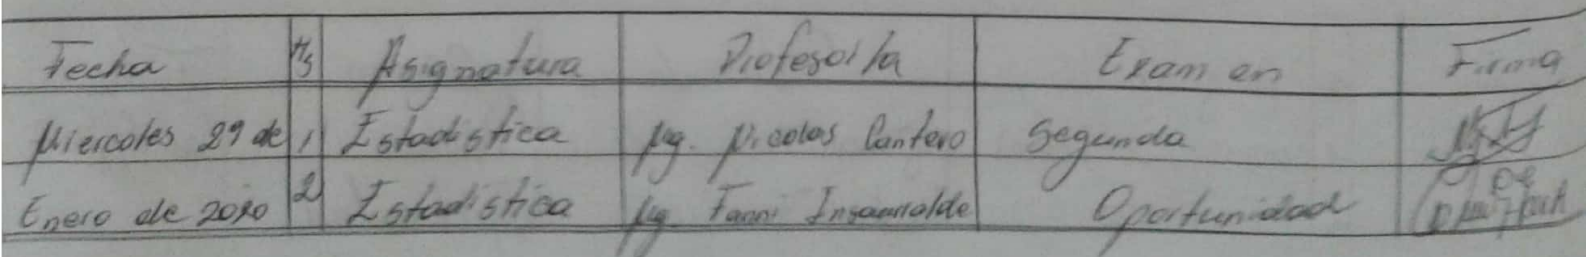 Fecha Hs Asignatura Profesor/a Examen Firma
Miercoles 29 de 1 Estadistica Mg. Nicolas Cantero Segunda
Enero de 2020 2 Estadistica Mg. Fanni Insaurralde Oportunidad